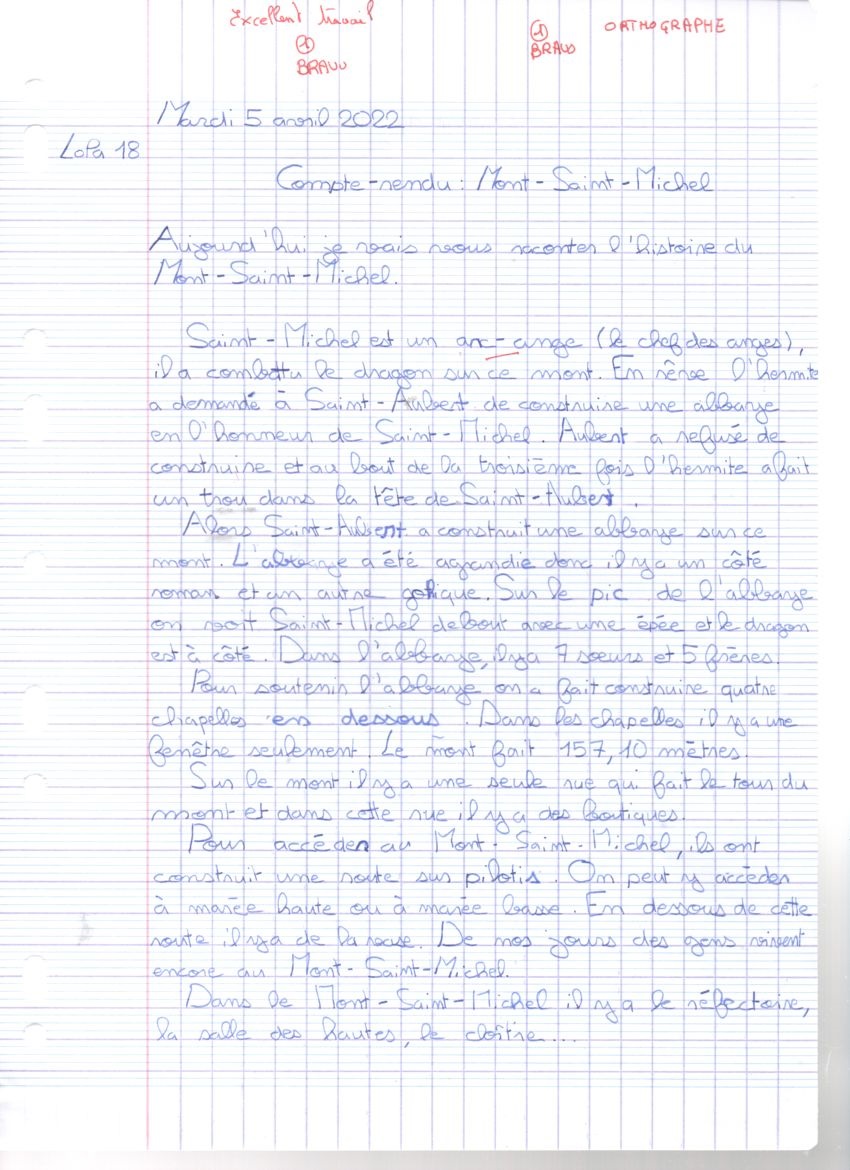 Excellent travail
+1
BRAVO
+1
BRAVO
ORTHOGRAPHE
Mardi 5 avril 2022
Lola 18
Compte-rendu : Mont-Saint-Michel
Aujourd'hui je vais vous raconter l'histoire du
Mont-Saint-Michel.
Saint-Michel est un arc-ange (le chef des anges),
il a combattu le dragon sur ce mont. En rêve l'hermite
a demandé à Saint-Aubert de construire une abbaye
en l'honneur de Saint-Michel. Aubert a refusé de
construire et au bout de la troisième fois l'hermite a fait
un trou dans la tête de Saint-Aubert.
Alors Saint-Aubert a construit une abbaye sur ce
mont. L'abbaye a été agrandie donc il y a un côté
roman et un autre gotique. Sur le pic de l'abbaye
on voit Saint-Michel debout avec une épée et le dragon
est à côté. Dans l'abbaye, il y a 7 soeurs et 5 frères.
Pour soutenir l'abbaye on a fait construire quatre
chapelles en dessous. Dans les chapelles il y a une
fenêtre seulement. Le mont fait 157,10 mètres.
Sur le mont il y a une seule rue qui fait le tour du
mont et dans cette rue il y a des boutiques.
Pour accéder au Mont-Saint-Michel, ils ont
construit une route sur pilotis. On peut y accéder
à marée haute ou à marée basse. En dessous de cette
route il y a de la vase. De nos jours des gens vivent
encore au Mont-Saint-Michel.
Dans le Mont-Saint-Michel il y a le réfectoire,
la salle des hautes, le cloître...